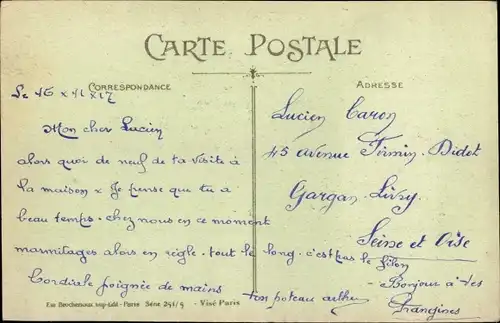 CARTE POSTALE
CORRESPONDANCE
ADRESSE
Le 16 x 11 x 17
Mon cher Lucien
alors quoi de neuf de ta visite à
la maison x Je pense que tu a
beau temps. chez nous en ce moment
marmitages alors en règle. tout le long. c'est pas le filon
Cordiale poignée de mains
ton poteau
Lucien Caron
45 avenue Firmin. Didot
Gargan. Livry.
Seine et Oise
- Bonjour à tes
frangines
Imp-Edit - Paris Série 251/5 - Visé Paris